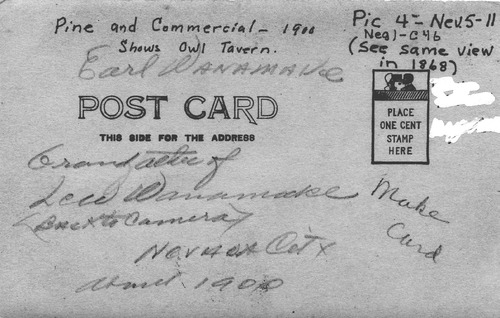 Pine and Commercial - 1900
Shows Owl Tavern.
Pic 4 - Nev5-11
Neg1-C46
(See same view
in 1868)
Earl Wanamake
POST CARD
THIS SIDE FOR THE ADDRESS
PLACE
ONE CENT
STAMP
HERE
Grandfather of
Lew Wanamake
(Back to Camera)
Nevada City
about 1900
Make
Card